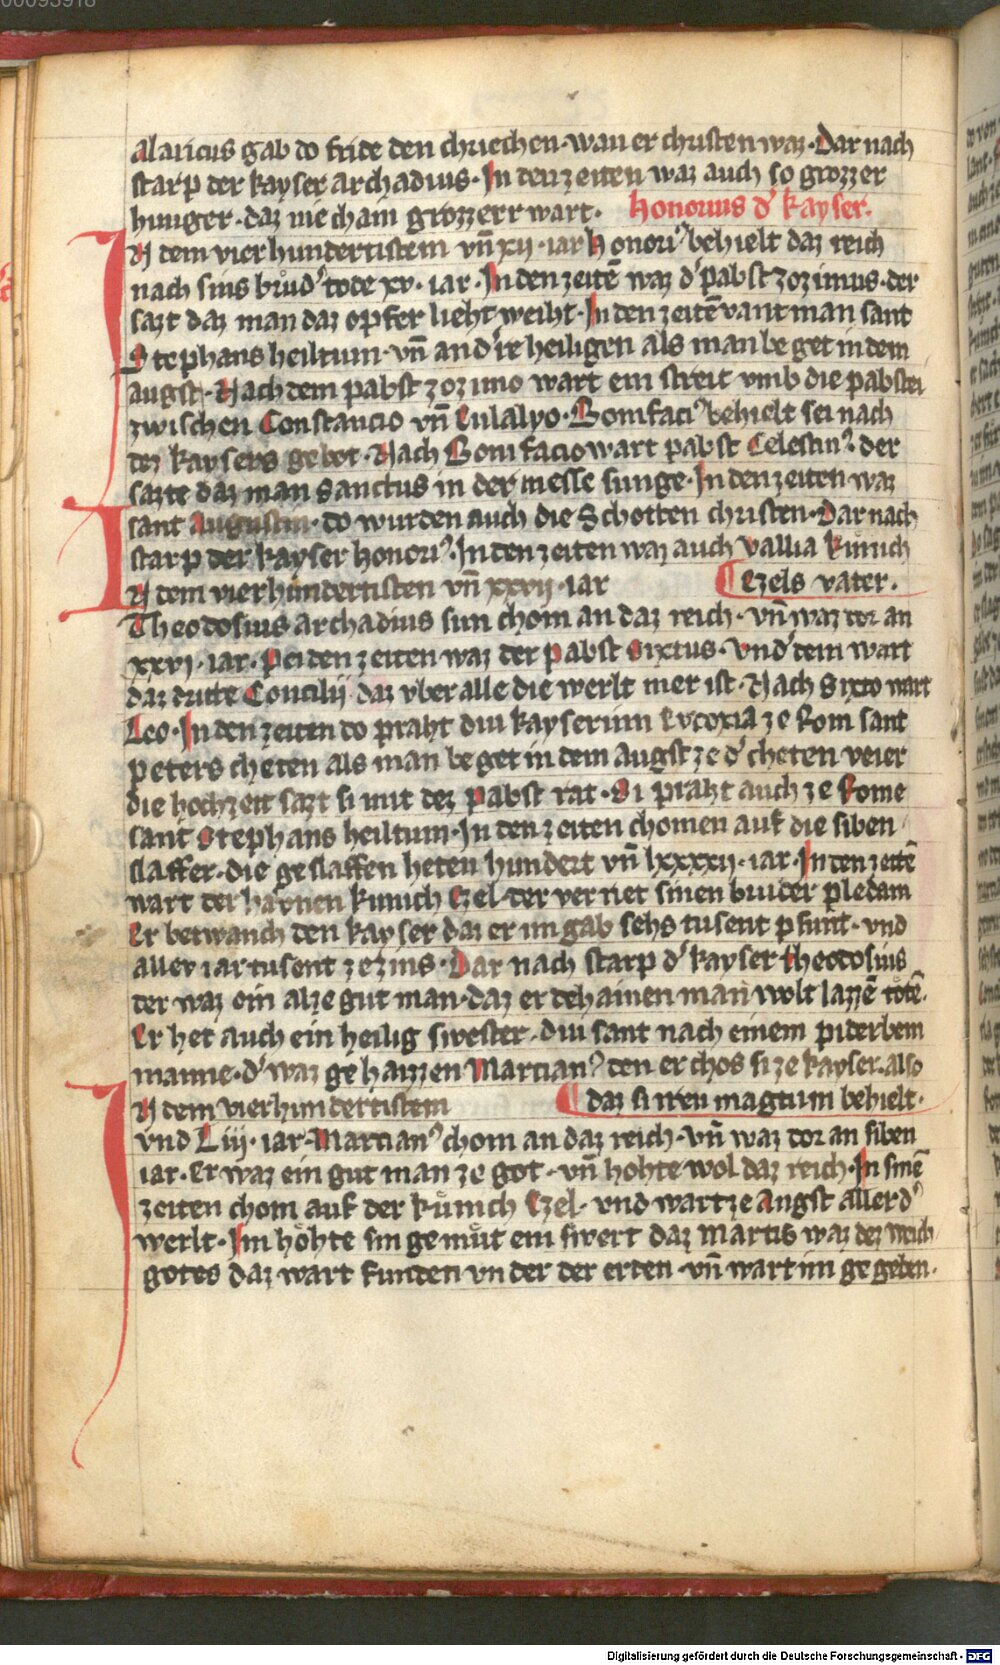 00093918
alaricus gab do fride den chriechen· wan er christen waz· Dar nach
starp der kayser archadius· In den zeiten waz auch so grozzer
hunger· daz nie chain grozzerr wart· honorius d' kayser.
IN dem vierhundertistem vn̄ xij· iar honori⁹ behielt daz reich
nach sins brůd' tode xv· iar· In den zeitē waz d' pabst zozimus· der
sazt daz man daz opfer lieht weiht· In den zeitē vant man sant
Stephans heiltum· vn̄ and're heiligen als man beget in dem
augst· Nach dem pabst zozimo wart ein streit vmb die pabstei
zwischen Constancio vn̄ Eulalyo· Bonifaci⁹ behielt sei nach
dez kaysers gebot· Nach Bonifacio wart pabst Celestin⁹ der
sazte daz man sanctus in der messe sunge· In den zeiten waz
sant Augustin· do wurden auch die Schotten christen· Dar nach
starp der kayser honori⁹· In den zeiten waz auch vallia kůnich
IN dem vierhundertisten vn̄ xxvij· iar ¶ Ezels vater.
Theodosius archadius sun chom an daz reich· vn̄ waz dor an
xxvj· iar· Pei den zeiten waz der pabst Sixtus· vnd' dem wart
daz dritte Concilij daz vber alle die werlt mer ist· Nach Sixto wart
Leo· In den zeiten do praht diu kayserinn Eudoxia ze Rom sant
peters cheten als man beget in dem augst ze d' cheten veier
die hochzeit sazt si mit dez pabst rat· Si praht auch ze Rome
sant Stephans heiltum· In den zeiten chomen auf die siben
slaffer· die geslaffen heten hundert vn̄ lxxxxij· iar· In den zeitē
wart der haunen kunich Ezel· der verriet sinen bruder pledam
Er betwanch den kayser daz er im gab sehs tusent pfunt· vnd
aller iar tusent ze zins· Dar nach starp d' kayser theodosius
der waz ein alze gut man· daz er dehainen man wolt lazzē totē·
Er het auch ein heilig swester· diu sant nach einem piderbem
manne· d' waz gehaizzen Marcian⁹ den er chos si ze kayser· also
IN dem vierhundertistem ¶ daz si iren magtum behielt·
vnd Liij· iar· Marcian⁹ chom an daz reich· vn̄ waz dor an siben
iar· Er waz ein gut man ze got· vn̄ hohte wol daz reich· In sinē
zeiten chom auf der kůnich Ezel· vnd wart ze angst aller d'
werlt· Im hôhte sin gemůt ein swert daz Martis waz dez weich
gotes daz wart funden vnder der erden· vn̄ wart im gegeben·
Digitalisierung gefördert durch die Deutsche Forschungsgemeinschaft - DFG